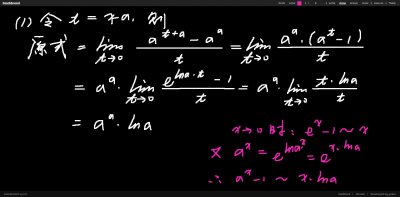 (1) 令 t = x-a, 则
原式 = lim t→0 (a^(t+a) - a^a)/t = lim t→0 (a^a·(a^t-1))/t
= a^a · lim t→0 (e^(lna·t) - 1)/t = a^a · lim t→0 (t·lna)/t
= a^a · lna
x→0时: e^x-1~x
又 a^x = e^(lna^x) = e^(x·lna)
∴ a^x-1 ~ x·lna